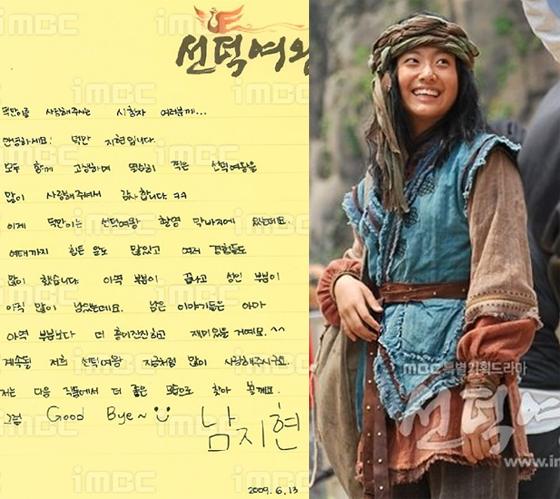 선덕여왕
덕만이를 사랑해주시는 시청자 여러분께...
안녕하세요! 덕만 지현입니다.
모두 함께 고생하며 열심히 찍은 선덕여왕을
많이 사랑해주셔서 감사합니다 ㅋㅋ
이제 덕만이는 선덕여왕 촬영 막바지에 있는데요.
여태까지 힘든 일도 많았고 여러 경험들도
많이 했습니다. 아역 부분이 끝나고 성인 부분이
아직 많이 남았는데요. 남은 이야기들은 아마
아역 부분보다 더 흥미진진하고 재미있을 거예요.^^
계속됨 저희 선덕여왕 지금처럼 많이 사랑해주시구요.
저는 다음 작품에서 더 좋은 모습으로 찾아 뵐게요.
그럼 Good Bye~
남지현
2009. 6. 13
imBC
MBC 특별기획드라마
선덕여
www.im